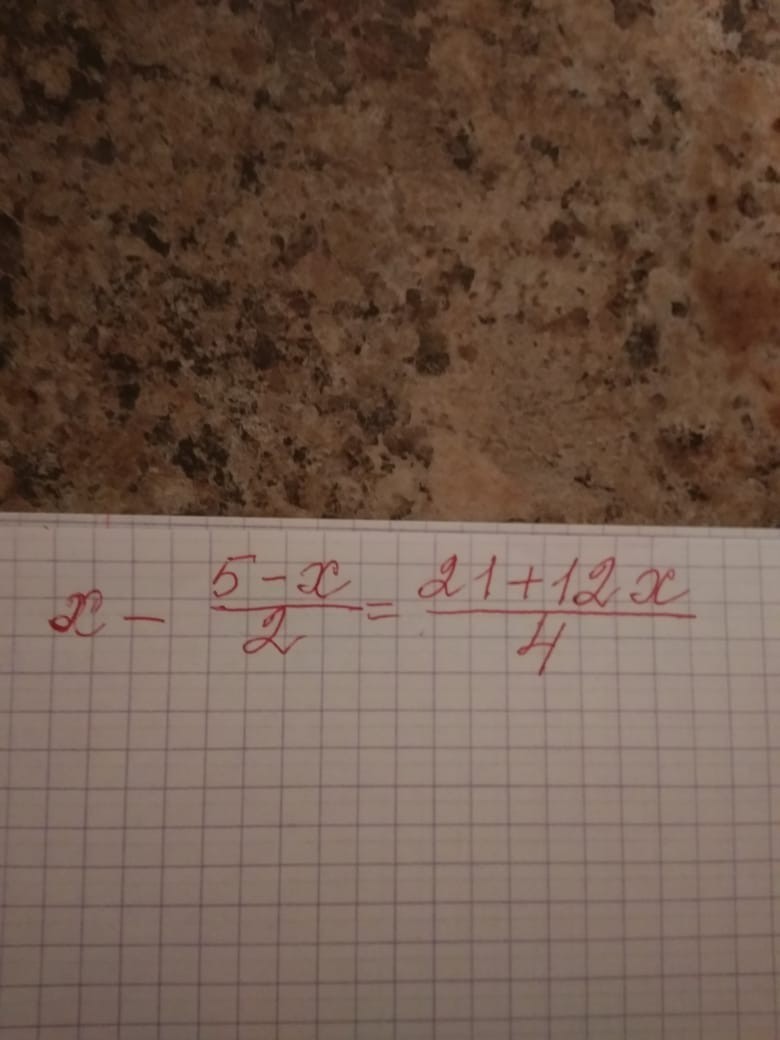 x - \frac{5-x}{2} = \frac{21+12x}{4}